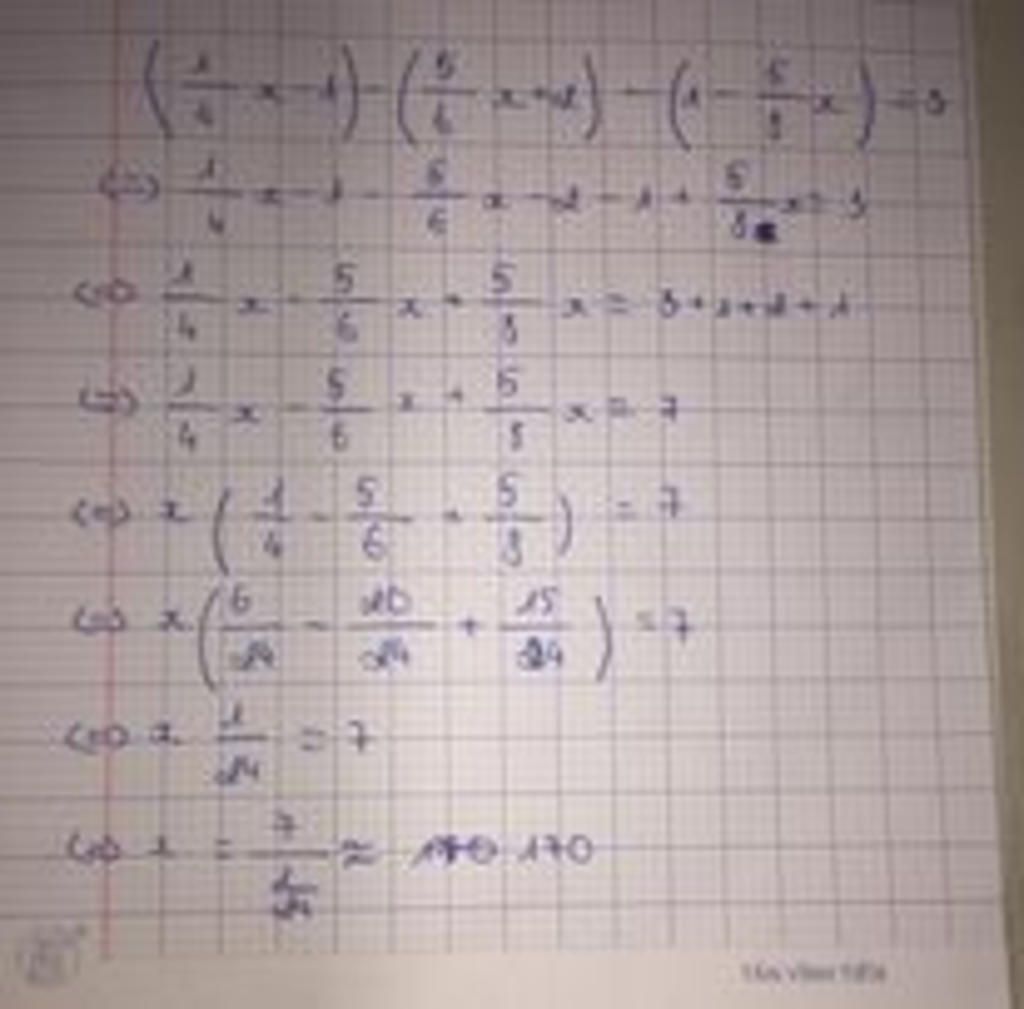 (1/4 x - 1) - (5/6 x + 2) - (1 - 5/8 x) = 3
(=) 1/4 x - 1 - 5/6 x - 2 - 1 + 5/8 x = 3
(=) 1/4 x - 5/6 x + 5/8 x = 3 + 1 + 2 + 1
(=) 1/4 x - 5/6 x + 5/8 x = 7
(=) x (1/4 - 5/6 + 5/8) = 7
(=) x (6/24 - 20/24 + 15/24) = 7
(=) x 1/24 = 7
(=) x = 7/(1/24) ≈ 170